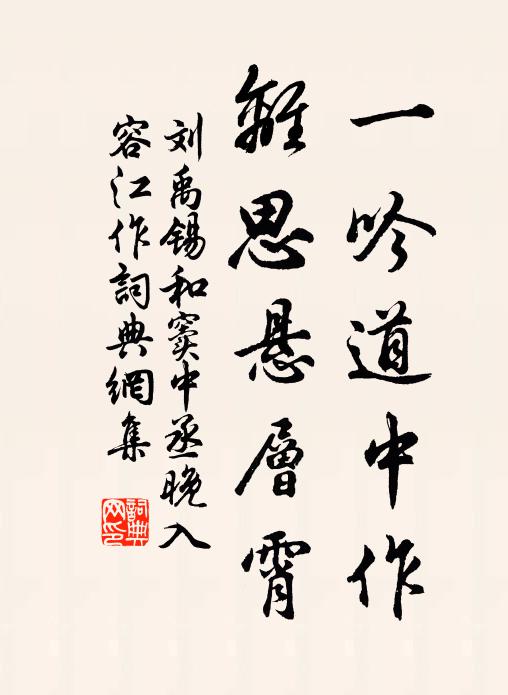 一吟道中作
離思悬層霄
刘禹锡和窦中丞晚入
容江作詞典網集
詞典网印